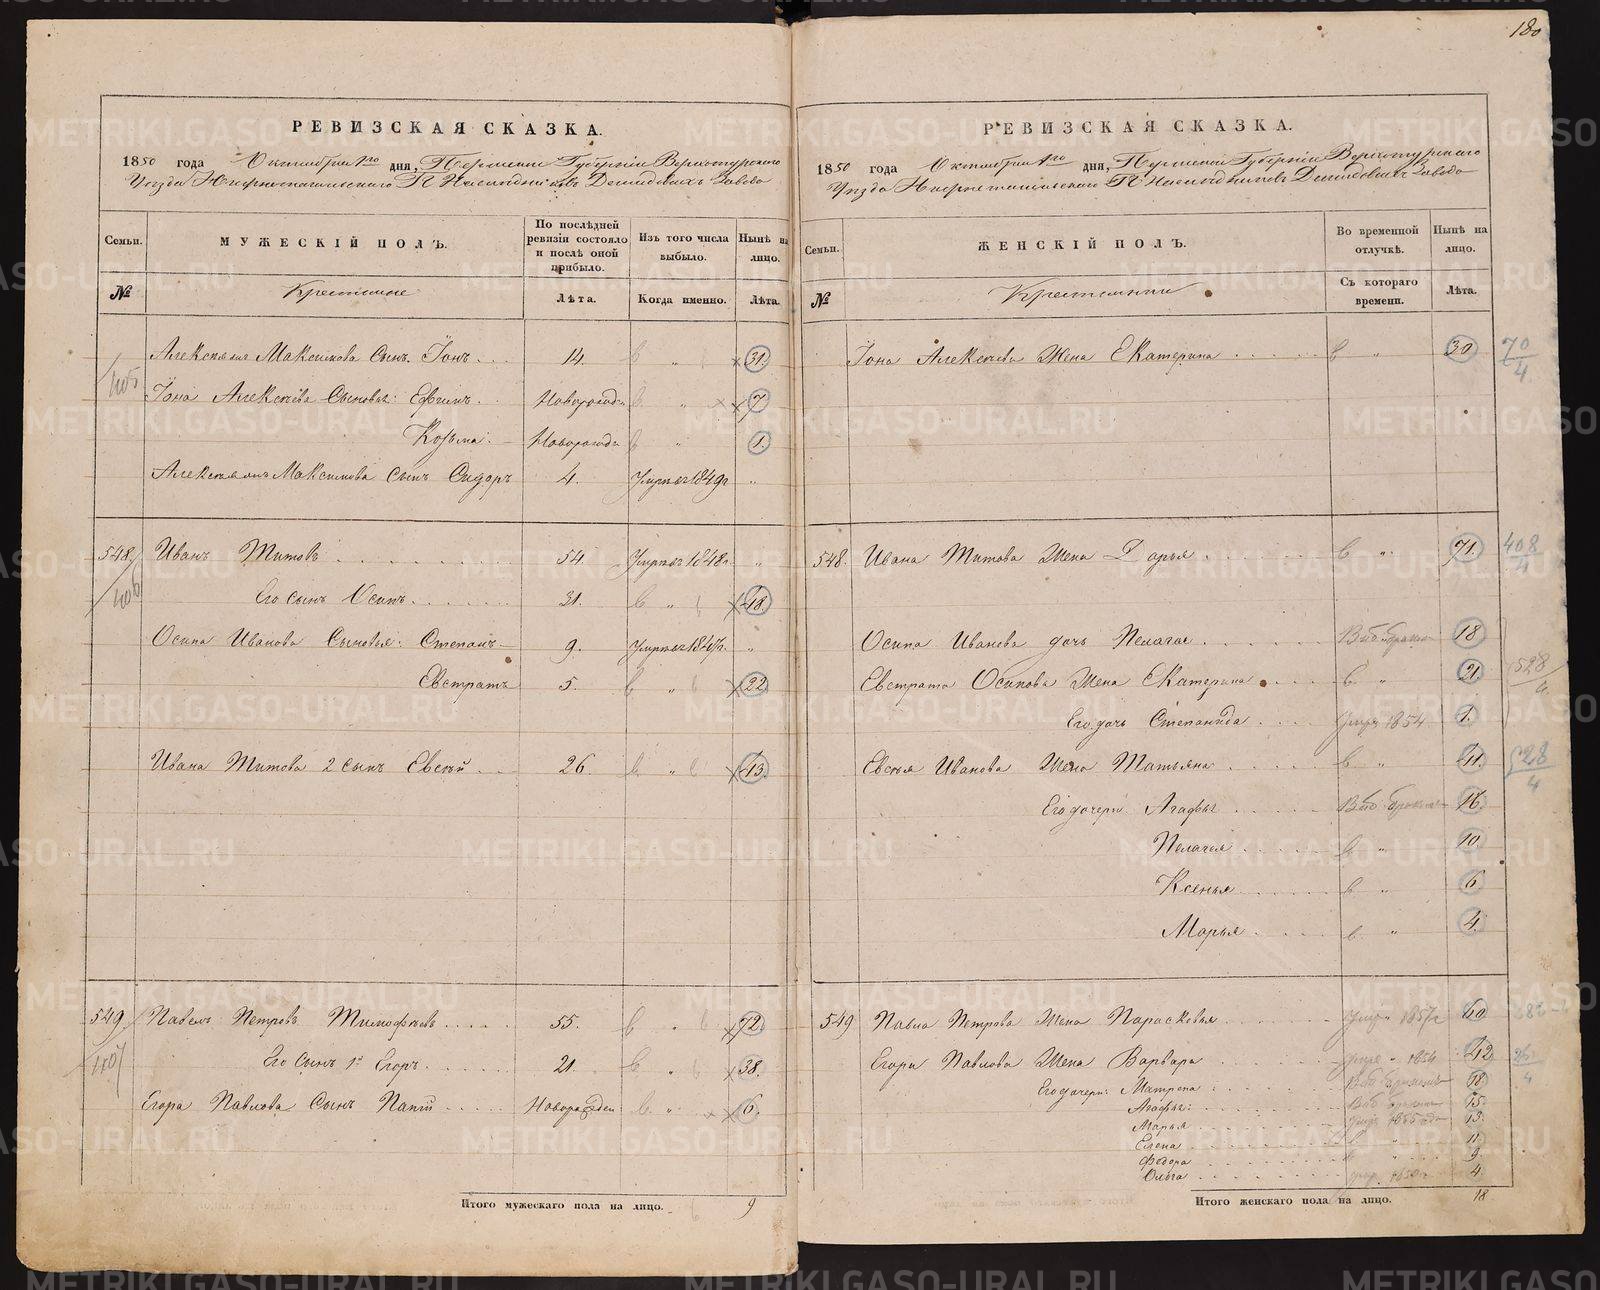 180
РЕВИЗСКАЯ СКАЗКА.
1850 года Октября 1го дня, Пермской Губерніи Верхотурскаго
Уѣзда Нижнетагильскаго Г Наслѣдниковъ Демидовыхъ Завода
Семьи. МУЖЕСКІЙ ПОЛЪ. По послѣдней ревизіи состояло и послѣ оной прибыло. Изъ того числа выбыло. Нынѣ на лицо.
№ Крестьяне Лѣта. Когда именно. Лѣта.
Алексѣя Максимова сынъ Іонъ 14. 31.
405
Іона Алексѣева Сыновья: Ефимъ Новорожд 7
Козьма Новорожд 1.
Максимова сынъ Сидоръ 4. Умре 1849г "
548. Иванъ Титовъ 54. Умре 1848г. "
406 Его сынъ Осипъ 31. " 48.
Осипа Иванова Сыновья: Степанъ 9. Умре 1847г. "
Евстратъ 5. " 22
Ивана Титова 2 сынъ Евсѣй 26. " 43.
549 Павелъ Петровъ Тимофѣевъ 55. " 72.
407 Его сынъ 1й Егоръ 21. " 38.
Егора Павлова Сынъ Новорожден " 6.
Итого мужескаго пола на лицо. 9
РЕВИЗСКАЯ СКАЗКА.
1850 года Октября 1го дня, Пермской Губерніи Верхотурскаго
Уѣзда Нижнетагильскаго Г Наслѣдниковъ Демидовыхъ Завода
Семьи. ЖЕНСКІЙ ПОЛЪ. Во временной отлучкѣ. Нынѣ на лицо.
№ Крестьянки Съ котораго времени. Лѣта.
Іона Алексѣева Жена Екатерина " 30 70/4
548. Ивана Титова Жена Дарья " 71. 408/4
Осипа Иванова дочь Пелагея 18
Евстрата Осипова Жена Екатерина " 21. 528/4
Его дочь Степанида Умре 1854 1.
Евсѣя Иванова Жена Татьяна " 41. 528/4
Его дочери Агафья 16.
Пелагея " 10
Ксенья " 6
Марья " 4.
549 Павла Петрова Жена Парасковья 1857г 60
Егора Павлова Жена Варвара 42
Его дочери: Матрена 18
Агафья: 15.
Марья 13.
Елена " 11.
Федора " 9.
Ольга 4.
Итого женскаго пола на лицо. 18
METRIKI.GASO-URAL.RU